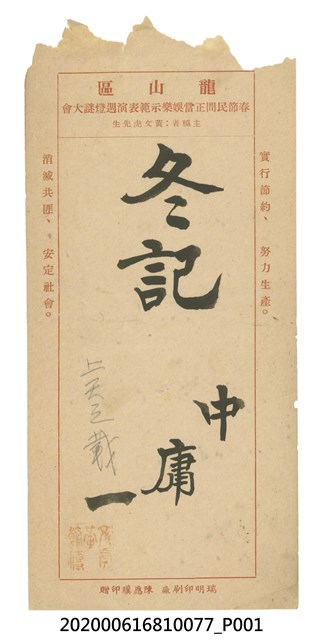 龍山區
春節民間正當娛樂示範表演週燈謎大會
主稿者：黃文虎先生
實行節約、努力生產。
冬記
中庸一
上天之載
消滅共匪、安定社會。
瑞明印刷廠 陳應璸印贈
202000616810077_P001